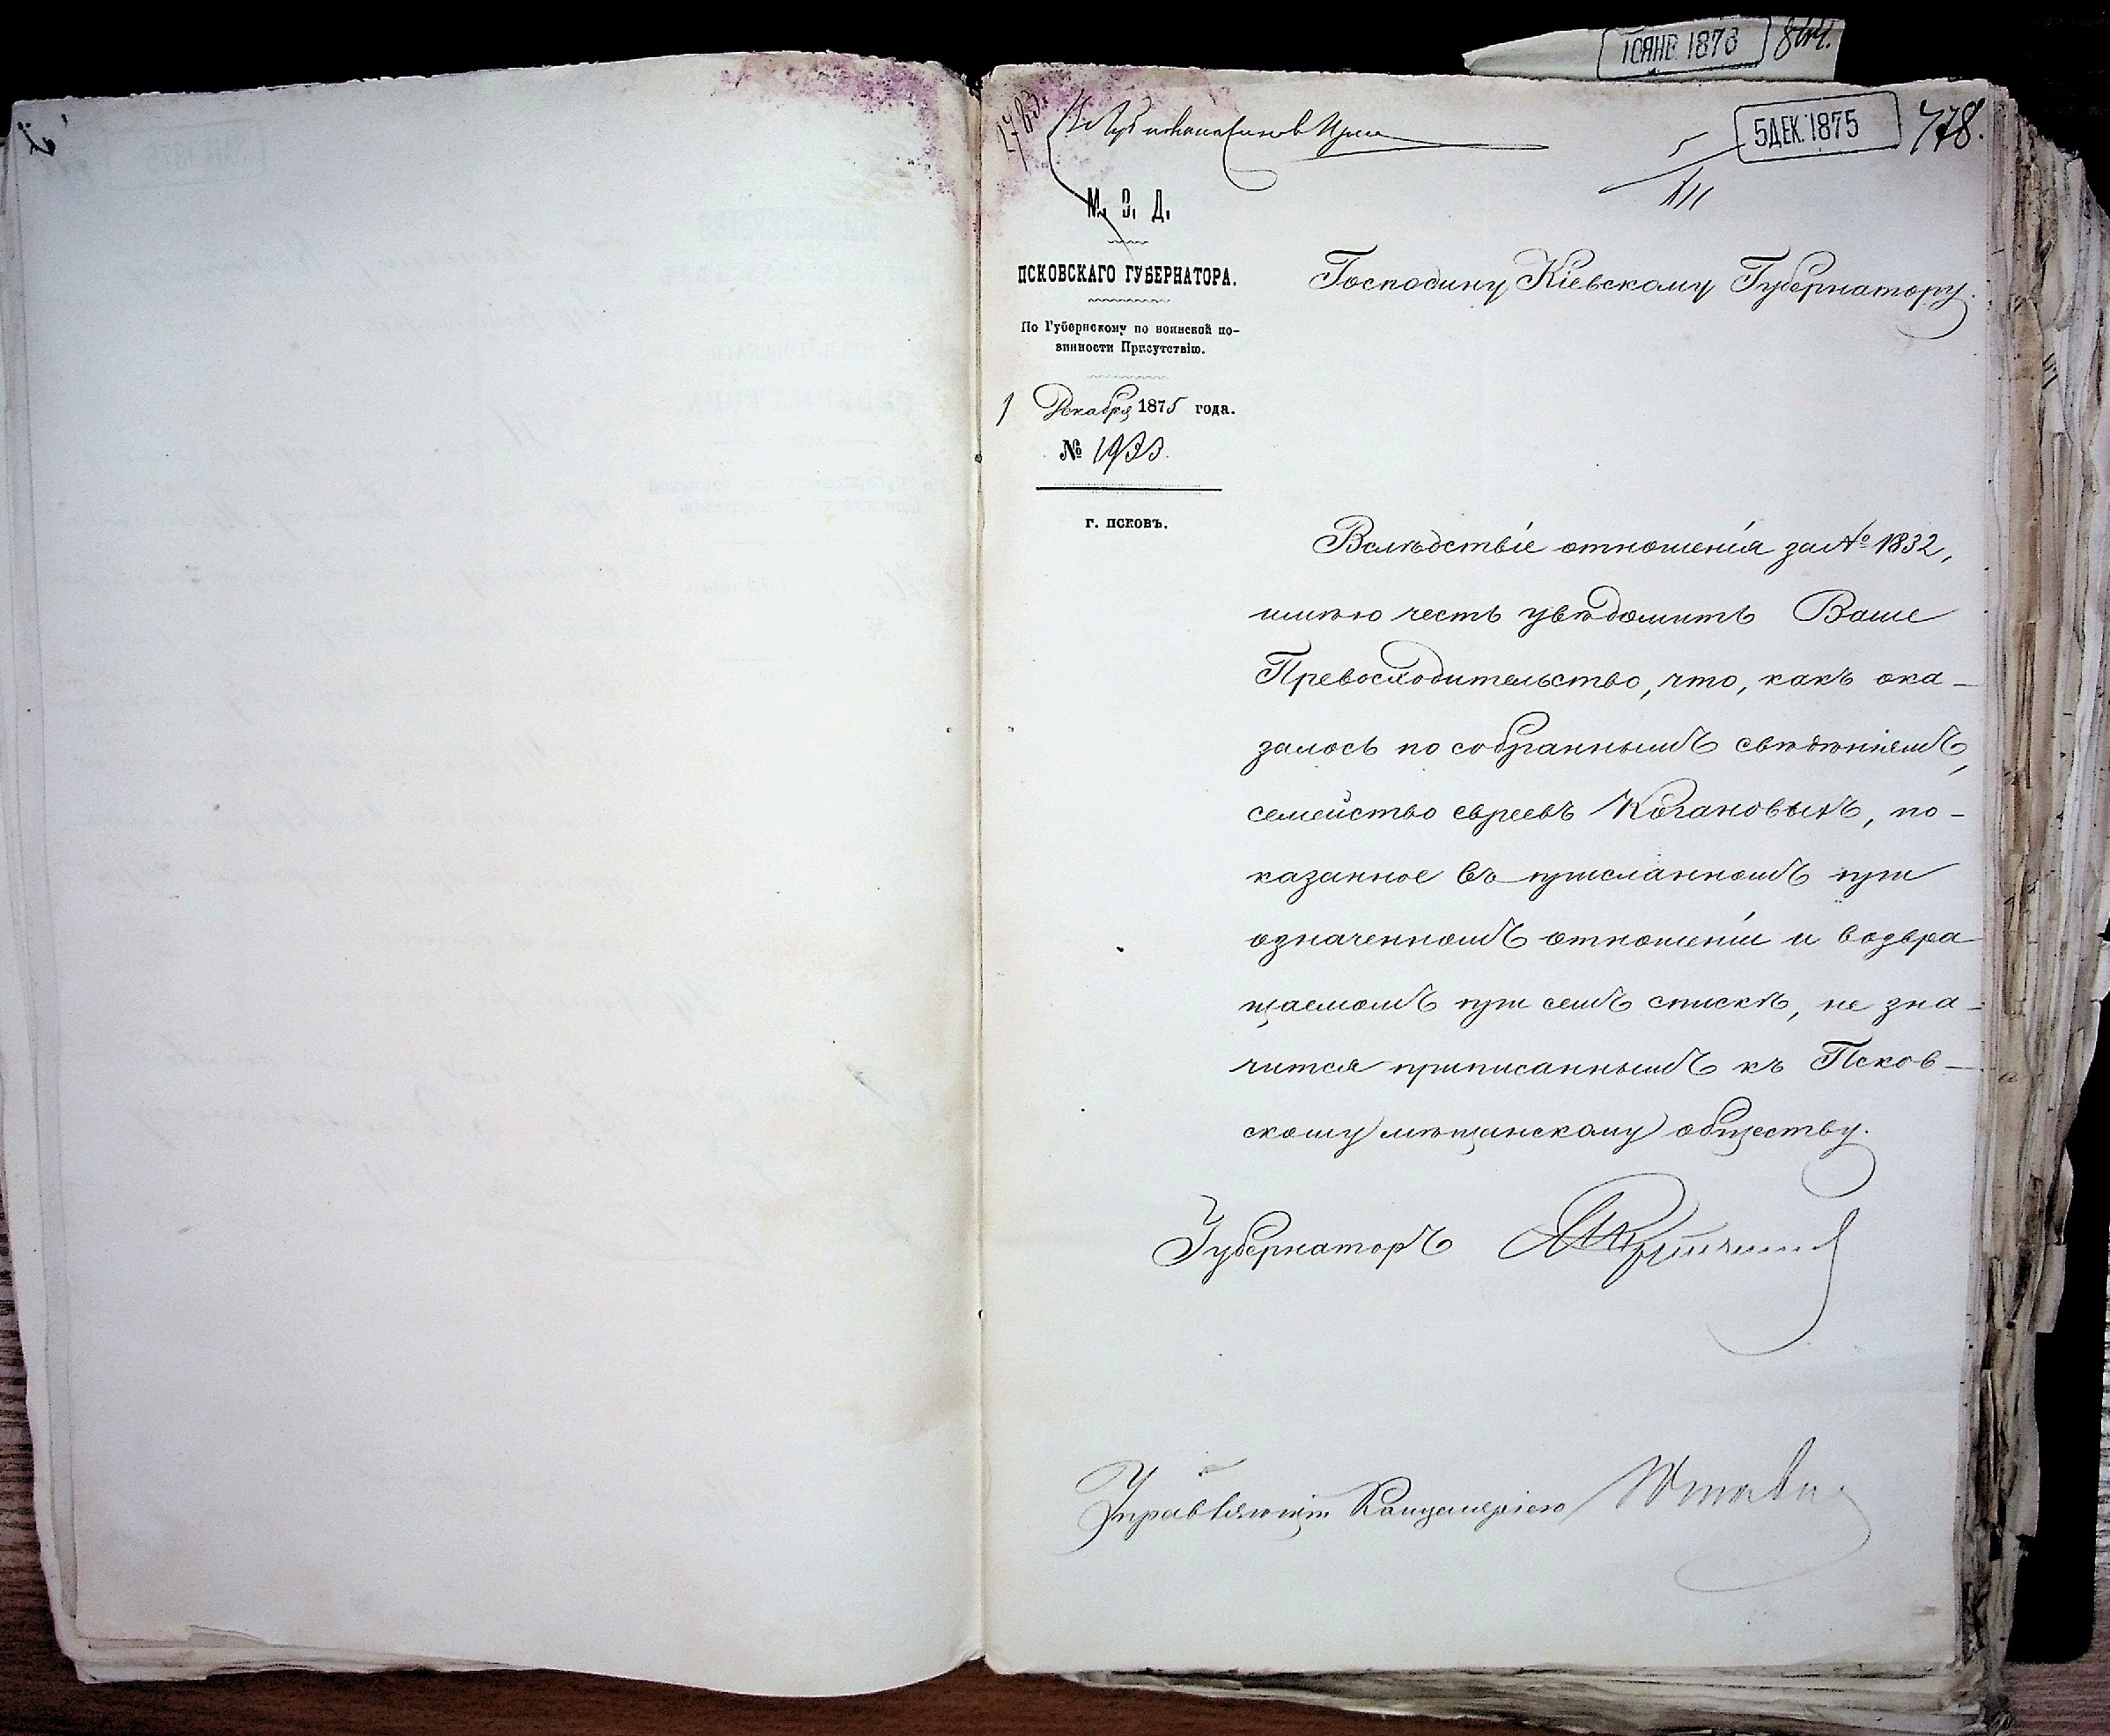 10 ЯНВ. 1876
5 ДЕК. 1875
778.
5/XII
М. В. Д.
ПСКОВСКАГО ГУБЕРНАТОРА.
По Губернскому по воинской по-
винности Присутствію.
1 Декабря 1875 года.
№ 1933.
г. ПСКОВЪ.
Господину Кіевскому Губернатору.
Вслѣдствіе отношенія за № 1832,
имѣю честь увѣдомить Ваше
Превосходительство, что, какъ ока-
залось по собраннымъ свѣдѣніямъ,
семейство евреевъ Когановыхъ, по-
казанное въ присланномъ при
означенномъ отношеніи и возвра
щаемомъ при семъ спискѣ, не зна-
чится приписаннымъ къ Псков-
скому мѣщанскому обществу.
Губернаторъ
Управляющій Канцеляріею